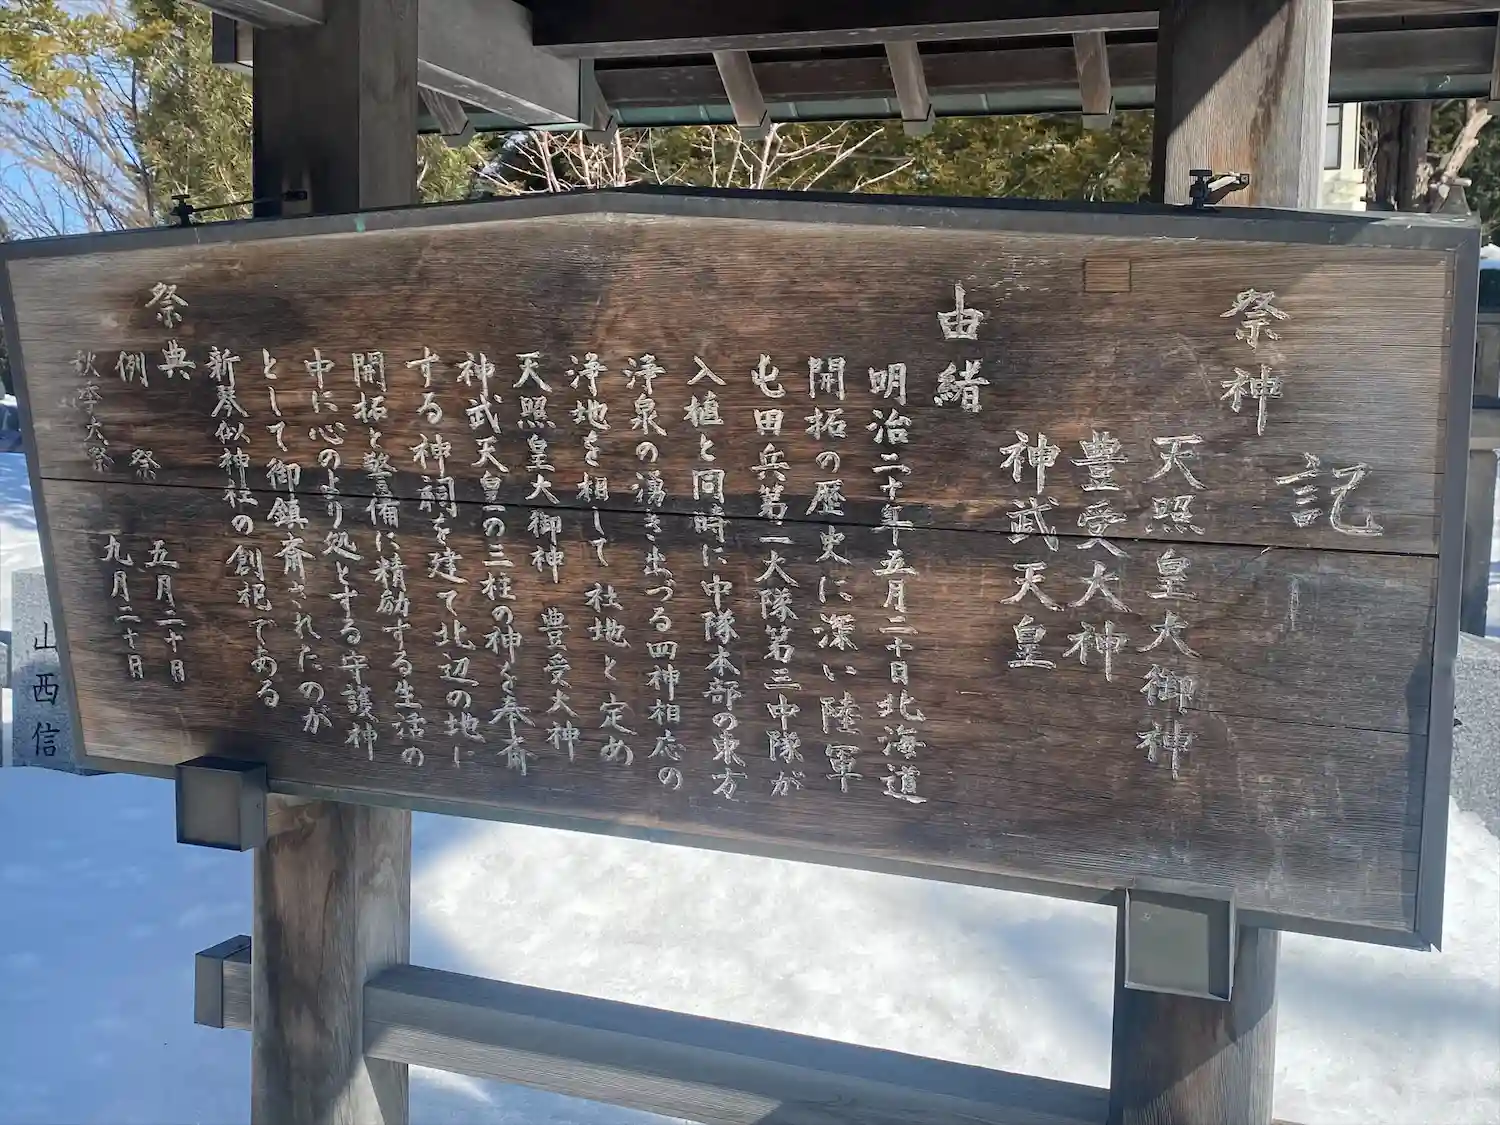 記
祭神
天照皇大御神
豊受大神
神武天皇
由緒
明治二十年五月二十日北海道
開拓の歴史に深い陸軍
屯田兵第一大隊第三中隊が
入植と同時に中隊本部の東方
浄泉の湧き出づる四神相応の
浄地を相して 社地と定め
天照皇大御神 豊受大神
神武天皇の三柱の神を奉斎
する神祠を建て北辺の地に
開拓と警備に精励する生活の
中に心のより処とする守護神
として御鎮斎されたのが
新琴似神社の創祀である
祭典
例祭 五月二十日
秋季大祭 九月二十日
山西信